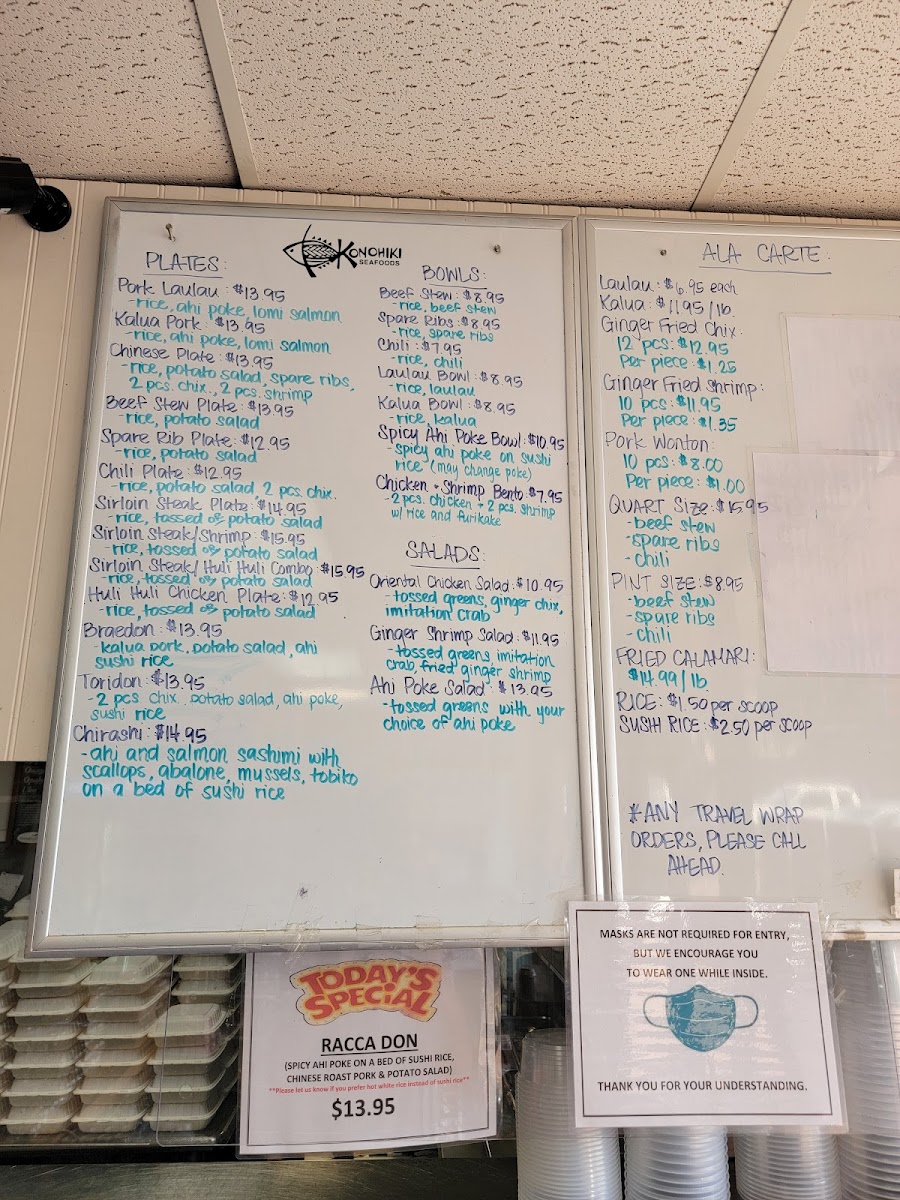 KONOHIKI
SEAFOODS
PLATES:
Pork Laulau: $13.95
-rice, ahi poke, lomi salmon
Kalua Pork: $13.95
-rice, ahi poke, lomi salmon
Chinese Plate: $13.95
-rice, potato salad, spare ribs,
2 pcs. chix., 2 pcs. shrimp
Beef Stew Plate: $13.95
-rice, potato salad
Spare Rib Plate: $12.95
-rice, potato salad
Chili Plate: $12.95
-rice, potato salad, 2 pcs. chix.
Sirloin Steak Plate: $14.95
-rice, tossed or potato salad
Sirloin Steak/Shrimp: $15.95
-rice, tossed or potato salad
Sirloin Steak/Huli Huli Combo: $15.95
-rice, tossed or potato salad
Huli Huli Chicken Plate: $12.95
-rice, tossed or potato salad
Braedon: $13.95
-kalua pork, potato salad, ahi
sushi rice
Toridon: $13.95
-2 pcs. chix. potato salad, ahi poke,
sushi rice
Chirashi: $14.95
-ahi and salmon sashimi with
scallops, abalone, mussels, tobiko
on a bed of sushi rice
BOWLS:
Beef Stew: $8.95
-rice, beef stew
Spare Ribs: $8.95
-rice, spare ribs
Chili: $7.95
-rice, chili
Laulau Bowl: $8.95
-rice, laulau
Kalua Bowl: $8.95
-rice, kalua
Spicy Ahi Poke Bowl: $10.95
-spicy ahi poke on sushi
rice (may change poke)
Chicken + Shrimp Bento: $7.95
-2 pcs. chicken + 2 pcs. shrimp
w/ rice and furikake
SALADS:
Oriental Chicken Salad: $10.95
-tossed greens, ginger chix,
imitation crab
Ginger Shrimp Salad: $11.95
-tossed greens, imitation
crab, fried ginger shrimp
Ahi Poke Salad: $13.95
-tossed greens with your
choice of ahi poke
ALA CARTE:
Laulau: $6.95 each
Kalua: $11.95/lb.
Ginger Fried Chix:
12 pcs: $12.95
Per piece: $1.25
Ginger Fried Shrimp:
10 pcs: $11.95
Per piece: $1.35
Pork Wonton:
10 pcs: $8.00
Per piece: $1.00
QUART SIZE: $15.95
-beef stew
-spare ribs
-chili
PINT SIZE: $8.95
-beef stew
-spare ribs
-chili
FRIED CALAMARI:
$14.99/lb.
RICE: $1.50 per scoop
SUSHI RICE: $2.50 per scoop
*ANY TRAVEL WRAP
ORDERS, PLEASE CALL
AHEAD.
TODAY'S
SPECIAL
RACCA DON
(SPICY AHI POKE ON A BED OF SUSHI RICE,
CHINESE ROAST PORK & POTATO SALAD)
**Please let us know if you prefer hot white rice instead of sushi rice**
$13.95
MASKS ARE NOT REQUIRED FOR ENTRY,
BUT WE ENCOURAGE YOU
TO WEAR ONE WHILE INSIDE.
THANK YOU FOR YOUR UNDERSTANDING.